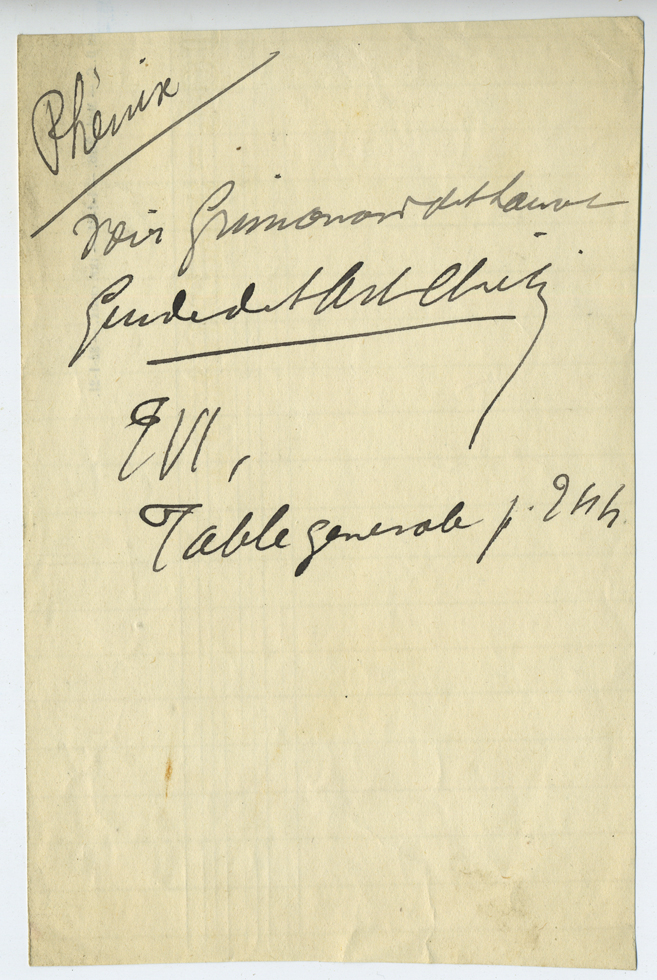 Phénix
Voir Grimouard de St Laurent
Guide de l'Art Chrét.
T VI,
Table generale p. 244